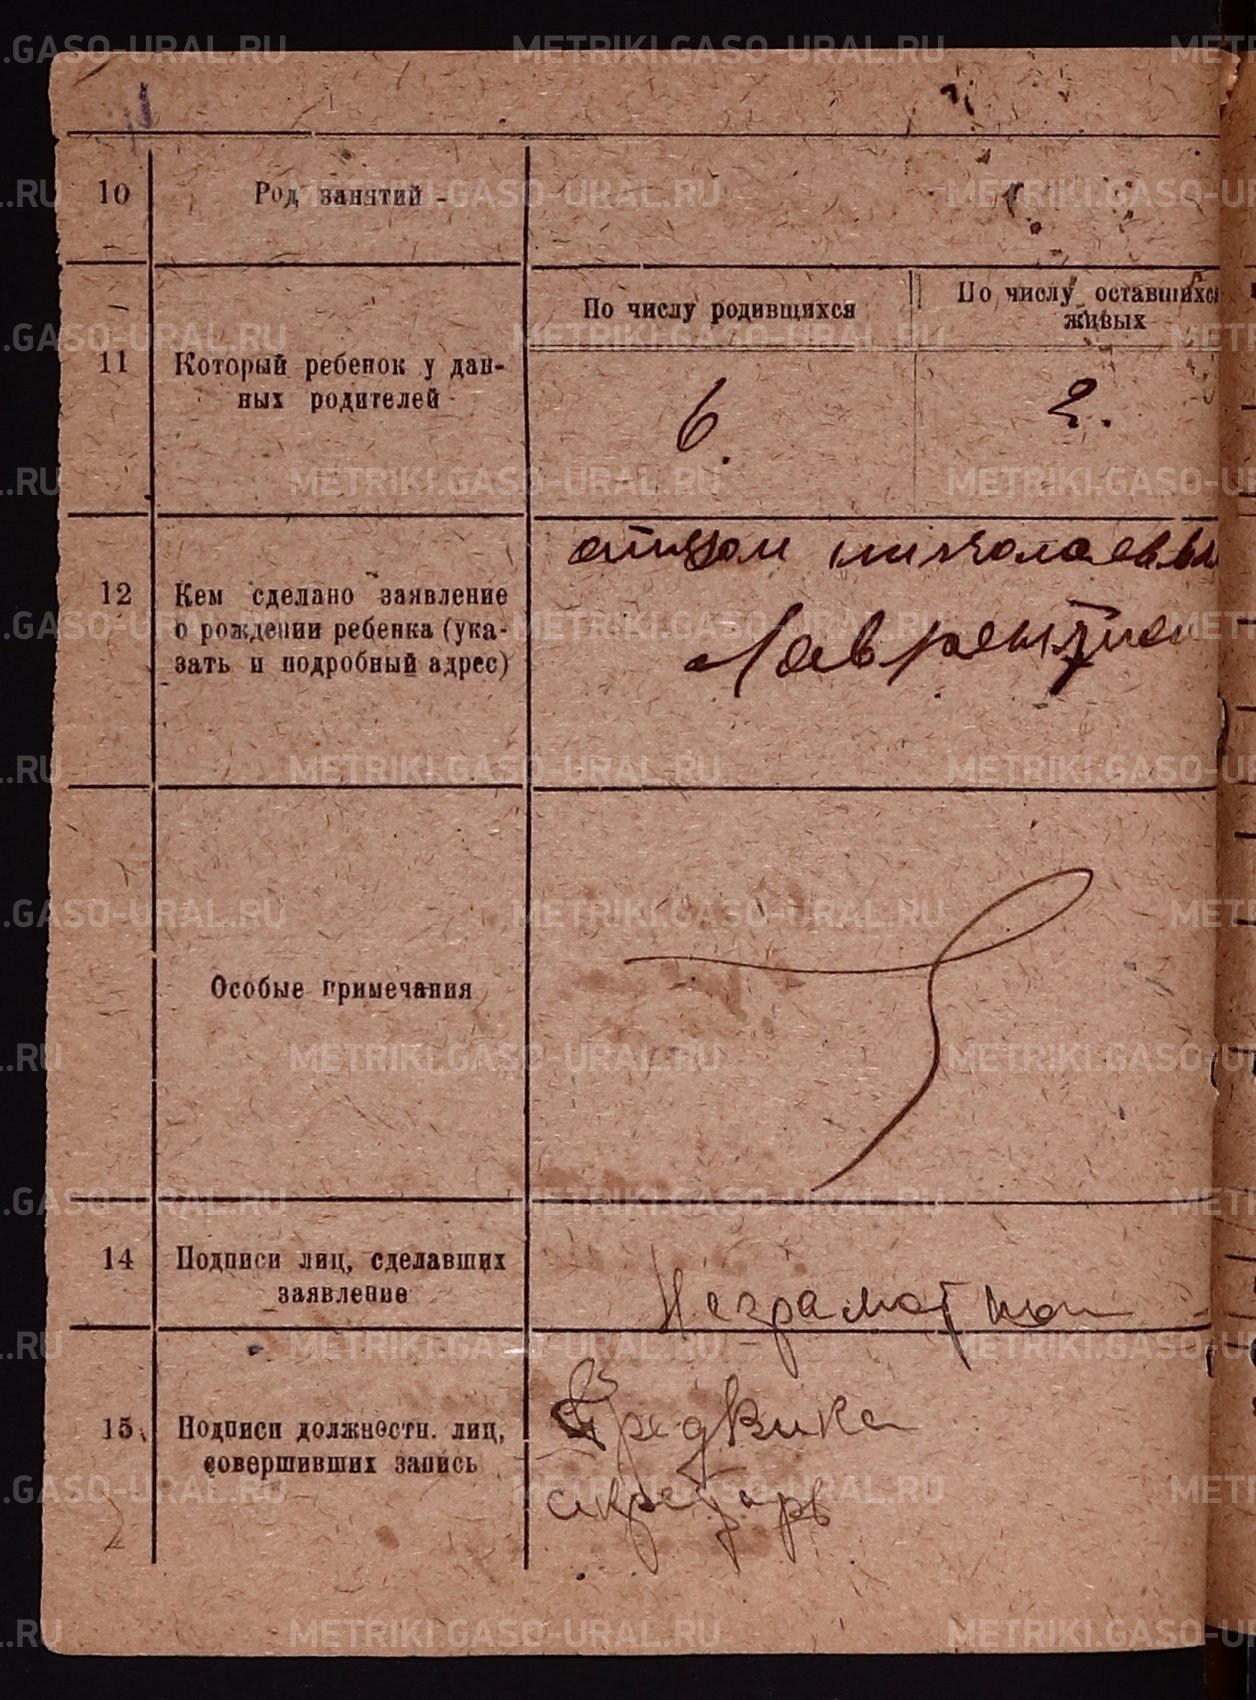 10 Род занятий -
По числу родившихся По числу оставшихся
живых
11 Который ребенок у дан-
ных родителей
6. 2.
отцом николаевым
12 Кем сделано заявление
о рождении ребенка (ука-
зать и подробный адрес)
Лаврентием
Особые примечания
14 Подписи лиц, сделавших
заявление
Неграмотной
15 Подписи должностн. лиц,
совершивших запись
Предвика
секретарь
METRIKI.GASO-URAL.RU